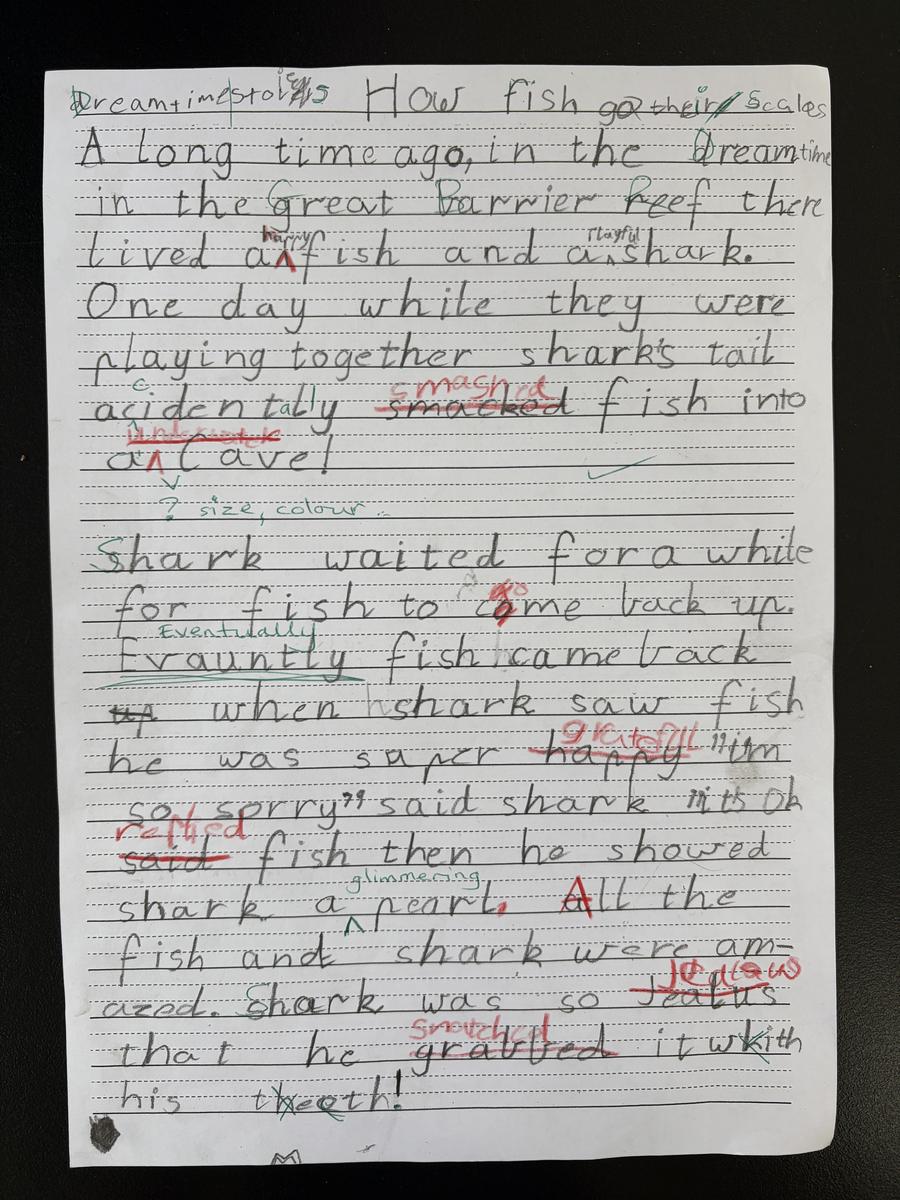 Dreamtime stories How fish go their Scales
A long time ago, in the Dreamtime
in the Great Barrier Reef there
happy playful
lived a fish and a shark.
One day while they were
playing together shark's tail
c smashed
acidentally smacked fish into
underwater
a Cave!
? size, colour ..
Shark waited for a while
for fish to come back up.
Eventually
Evauntly fish came back
up when shark saw fish
grateful
he was super happy "im
so sorry" said shark "its ok
replied
said fish then he showed
glimmering
shark a pearl. All the
fish and shark were am-
azed. Shark was so Jealus
Jealous
snatched
that he grabbed it with
his teeth!